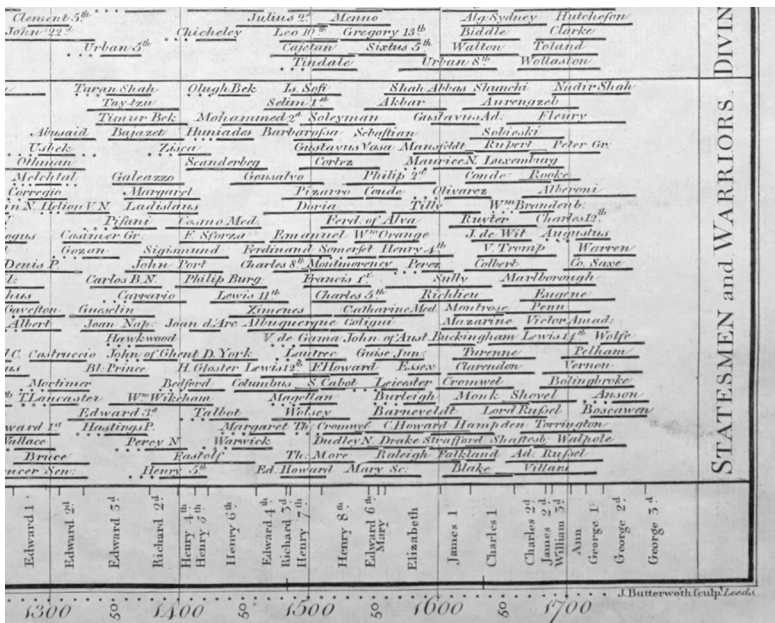 Clement 5th Julius 2d Menno Alg: Sydney Hutcheson
John 22d Chicheley Leo 10th Gregory 13th Biddle Clarke
Urban 5th Cajetan Sixtus 5th Walton Toland
Tindale Urban 8th Wollaston
DIVIN
Turan Shah Olugh Bek Is. Sofi Shah Abbas Nadir Shah
Selim 1st Akbar Aurengzeb
Timur Bek Mohammed 2d Soleyman Gustavus Ad. Fleury
Abusaid Bajazet Huniades Barbarossa Sebastian Sobieski
Usbek Zisca Gustavus Vasa Mansfeldt Rupert Peter Gr.
Othman Scanderbeg Cortez Maurice N. Luxemburg
Melchtal Galeazzo Gonsalvo Philip 2d Conde Rooke
Corregio Margaret Pizarro Conde Olivarez Alberoni
in N. Helion V.N. Ladislaus Doria Tilly Wm Brandenb.
Pisani Cosmo Med. Ferd. of Alva Ruyter Charles 12th
Casimer Gr. F. Sforza Emanuel Wm Orange J. de Wit Augustus
Gozan Sigismund Ferdinand Somerset Henry 4th V. Tromp Warren
Denis P. John Port Charles 8th Montmorency Perez Colbert Co. Saxe
Carlos B.N. Philip Burg. Francis 1st Sully Marlborough
hus Carrario Lewis 11th Charles 5th Richlieu Eugene
Gaveston Guesclin Ximenes Catharine Med. Montrose Penn
Albert Joan Nap. Joan d'Arc Albuquerque Coligni Mazarine Victor Amad:
Hawkwood V. de Gama John of Aust. Buckingham Lewis 14th Wolfe
C. Castruccio John of Ghent D. York Lautrec Guise Jun: Turenne Pelham
us Bl. Prince H. Gloster Lewis 12th E Howard Essex Clarendon Vernon
Mortimer Bedford Columbus S. Cabot Leicester Cromwel Bolingbroke
th T. Lancaster Wm Wikeham Magellan Burleigh Monk Shovel Anson
Edward 3d Talbot Wolsey Barneveldt Lord Russel Boscawen
ward 1st Hastings P. Margaret Th: Cromwel C. Howard Hampden Torrington
Wallace Percy N Warwick Dudley N. Drake Strafford Shaftesb: Walpole
Bruce Fastolf Th: More Raleigh Falkland Ad: Russel
ncer Sen: Henry 5th Ed. Howard Mary Sc: Blake Villars
STATESMEN and WARRIORS
Edward 1 Edward 2d Edward 3d Richard 2d Henry 4th Henry 5th Henry 6th Edward 4th Richard 3d Henry 7th Henry 8th Edward 6th Mary Elizabeth James 1 Charles 1 Charles 2d James 2d William 3d Ann George 1st George 2d George 3d
J. Butterworth sculp. Leeds.
1300 50 1400 50 1500 50 1600 50 1700